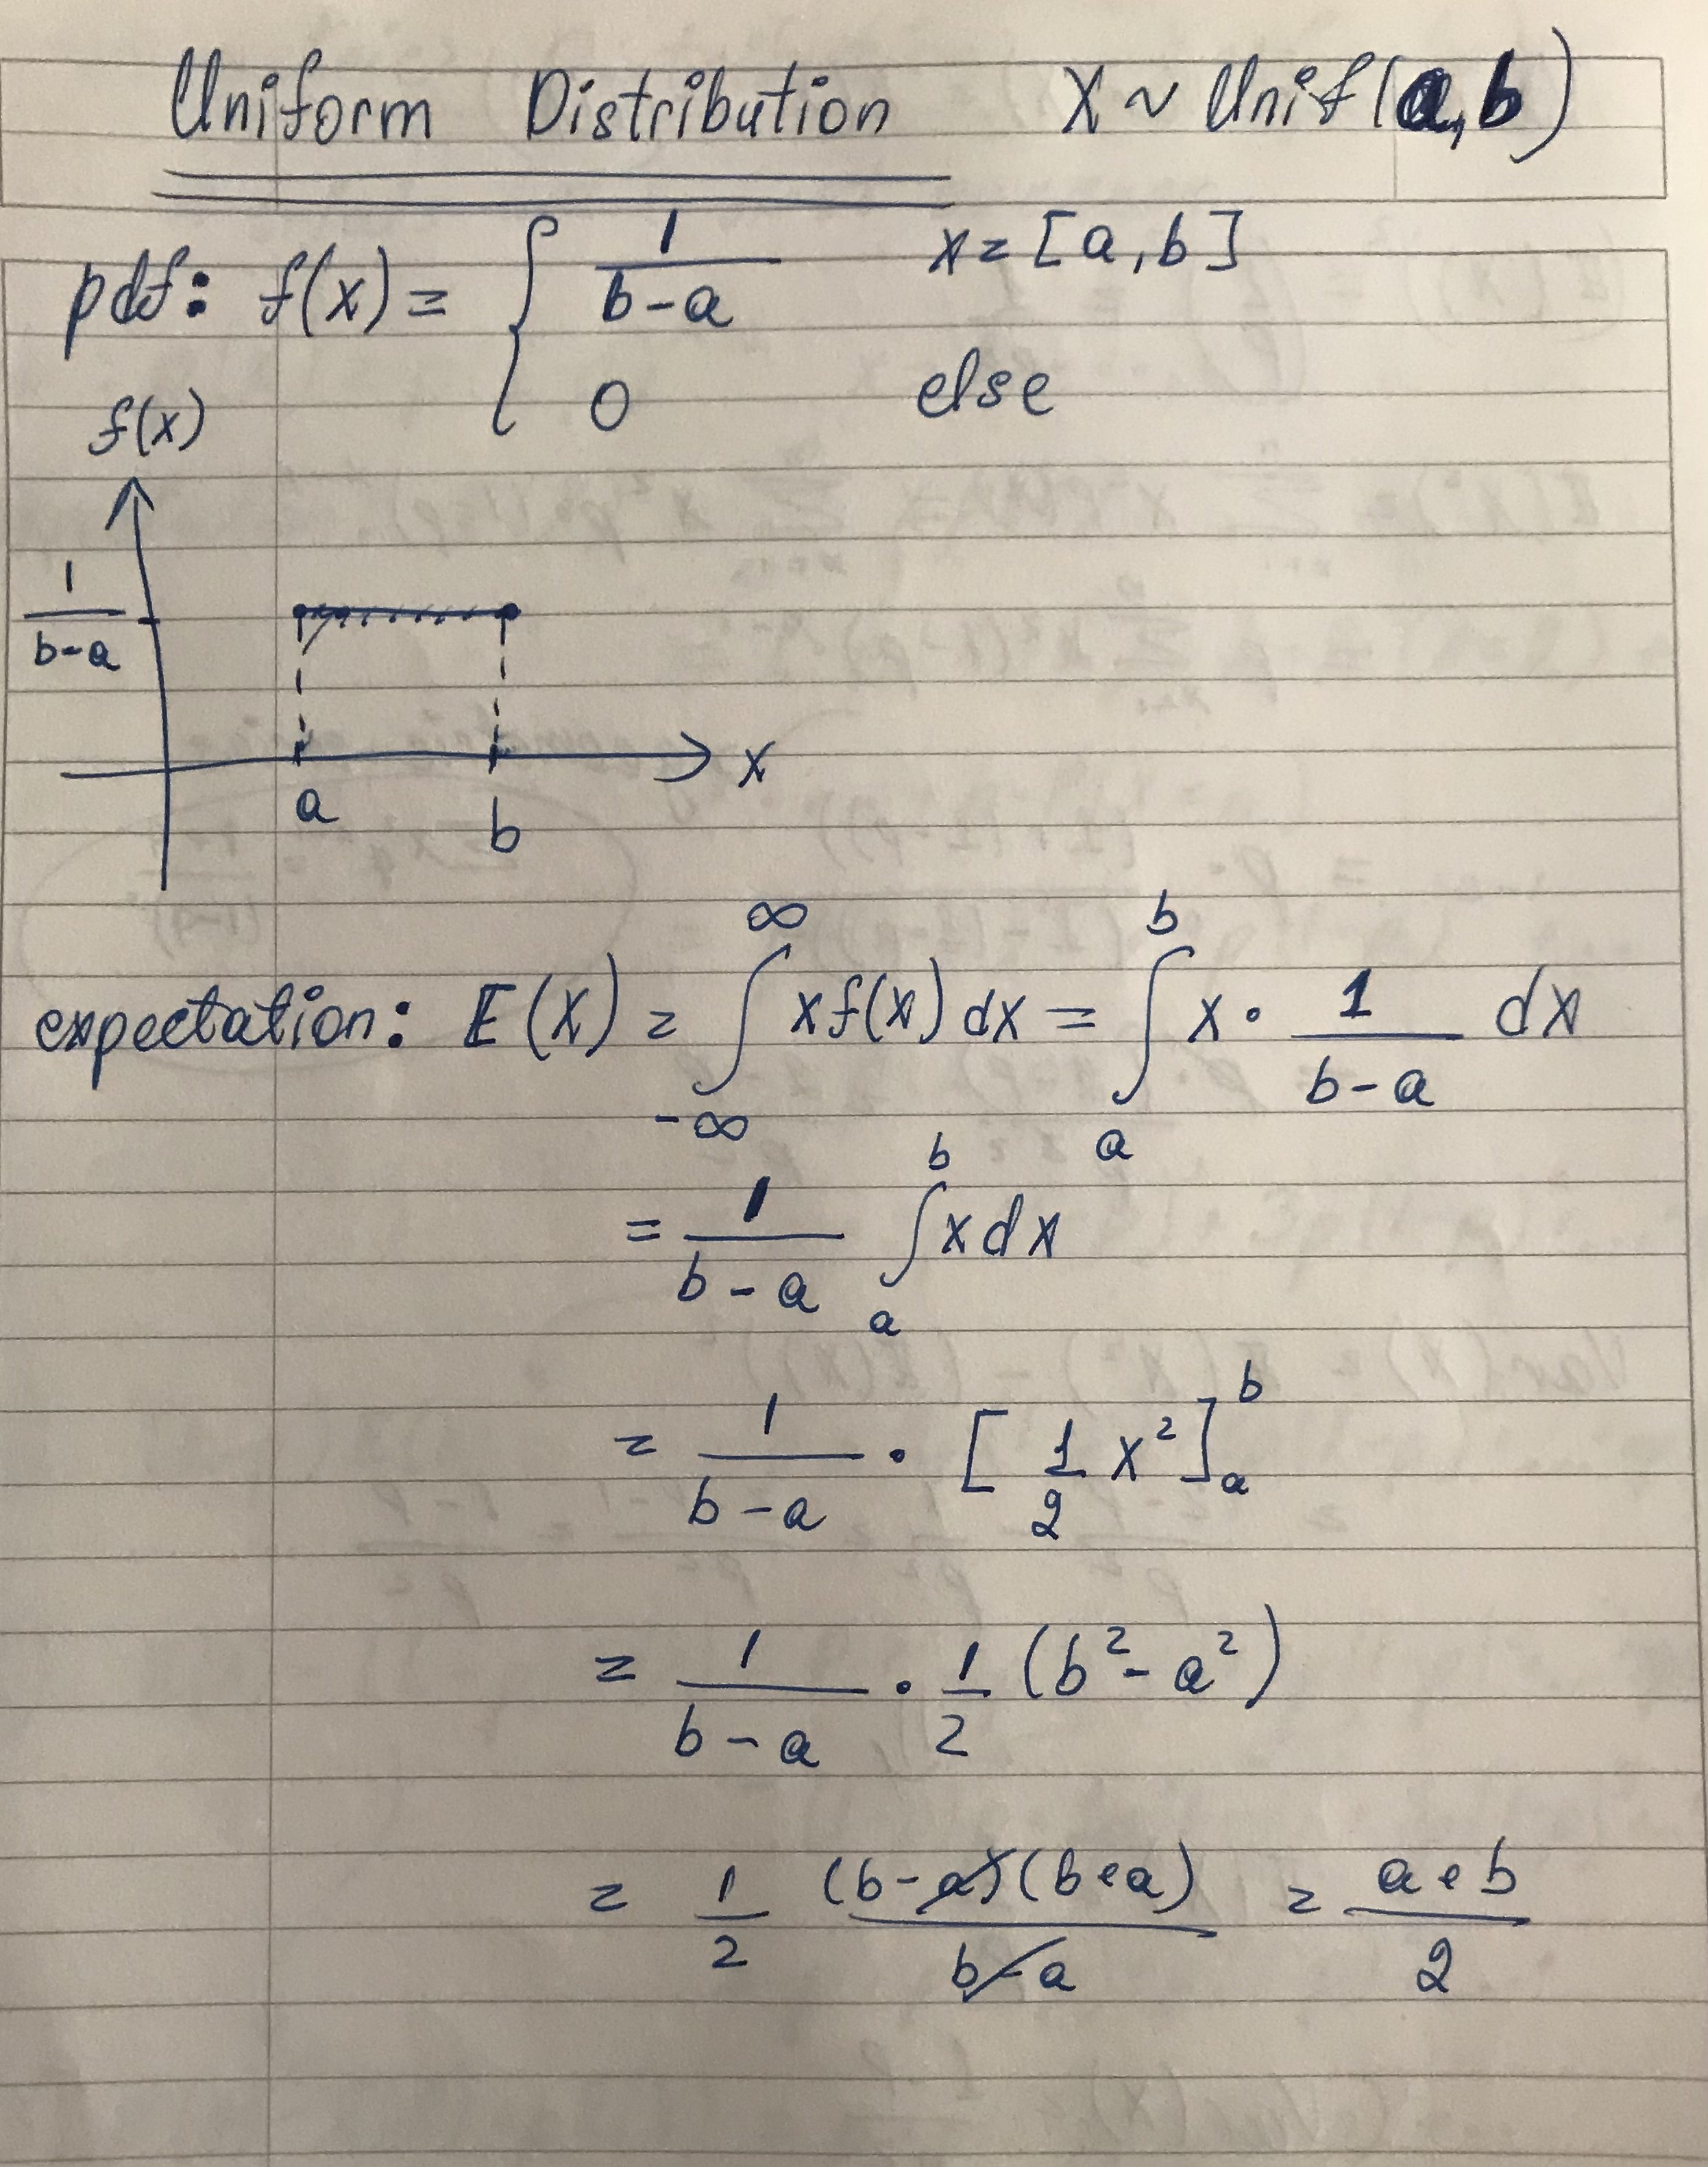 Uniform Distribution X ~ Unif(a,b)
pdf: f(x) = { 1/(b-a) x = [a,b]
0 else
f(x)
1/(b-a)
x
a b
expectation: E(X) = ∫_{-∞}^{∞} xf(x) dx = ∫_a^b x · 1/(b-a) dx
= 1/(b-a) ∫_a^b x dx
= 1/(b-a) · [1/2 x²]_a^b
= 1/(b-a) · 1/2 (b² - a²)
= 1/2 (b-a)(b+a)/(b-a) = (a+b)/2